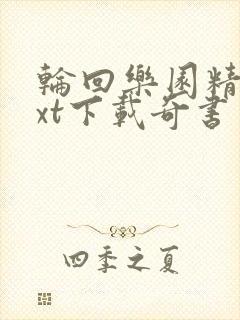 輪回樂園精
xt下載奇書
四季之夏